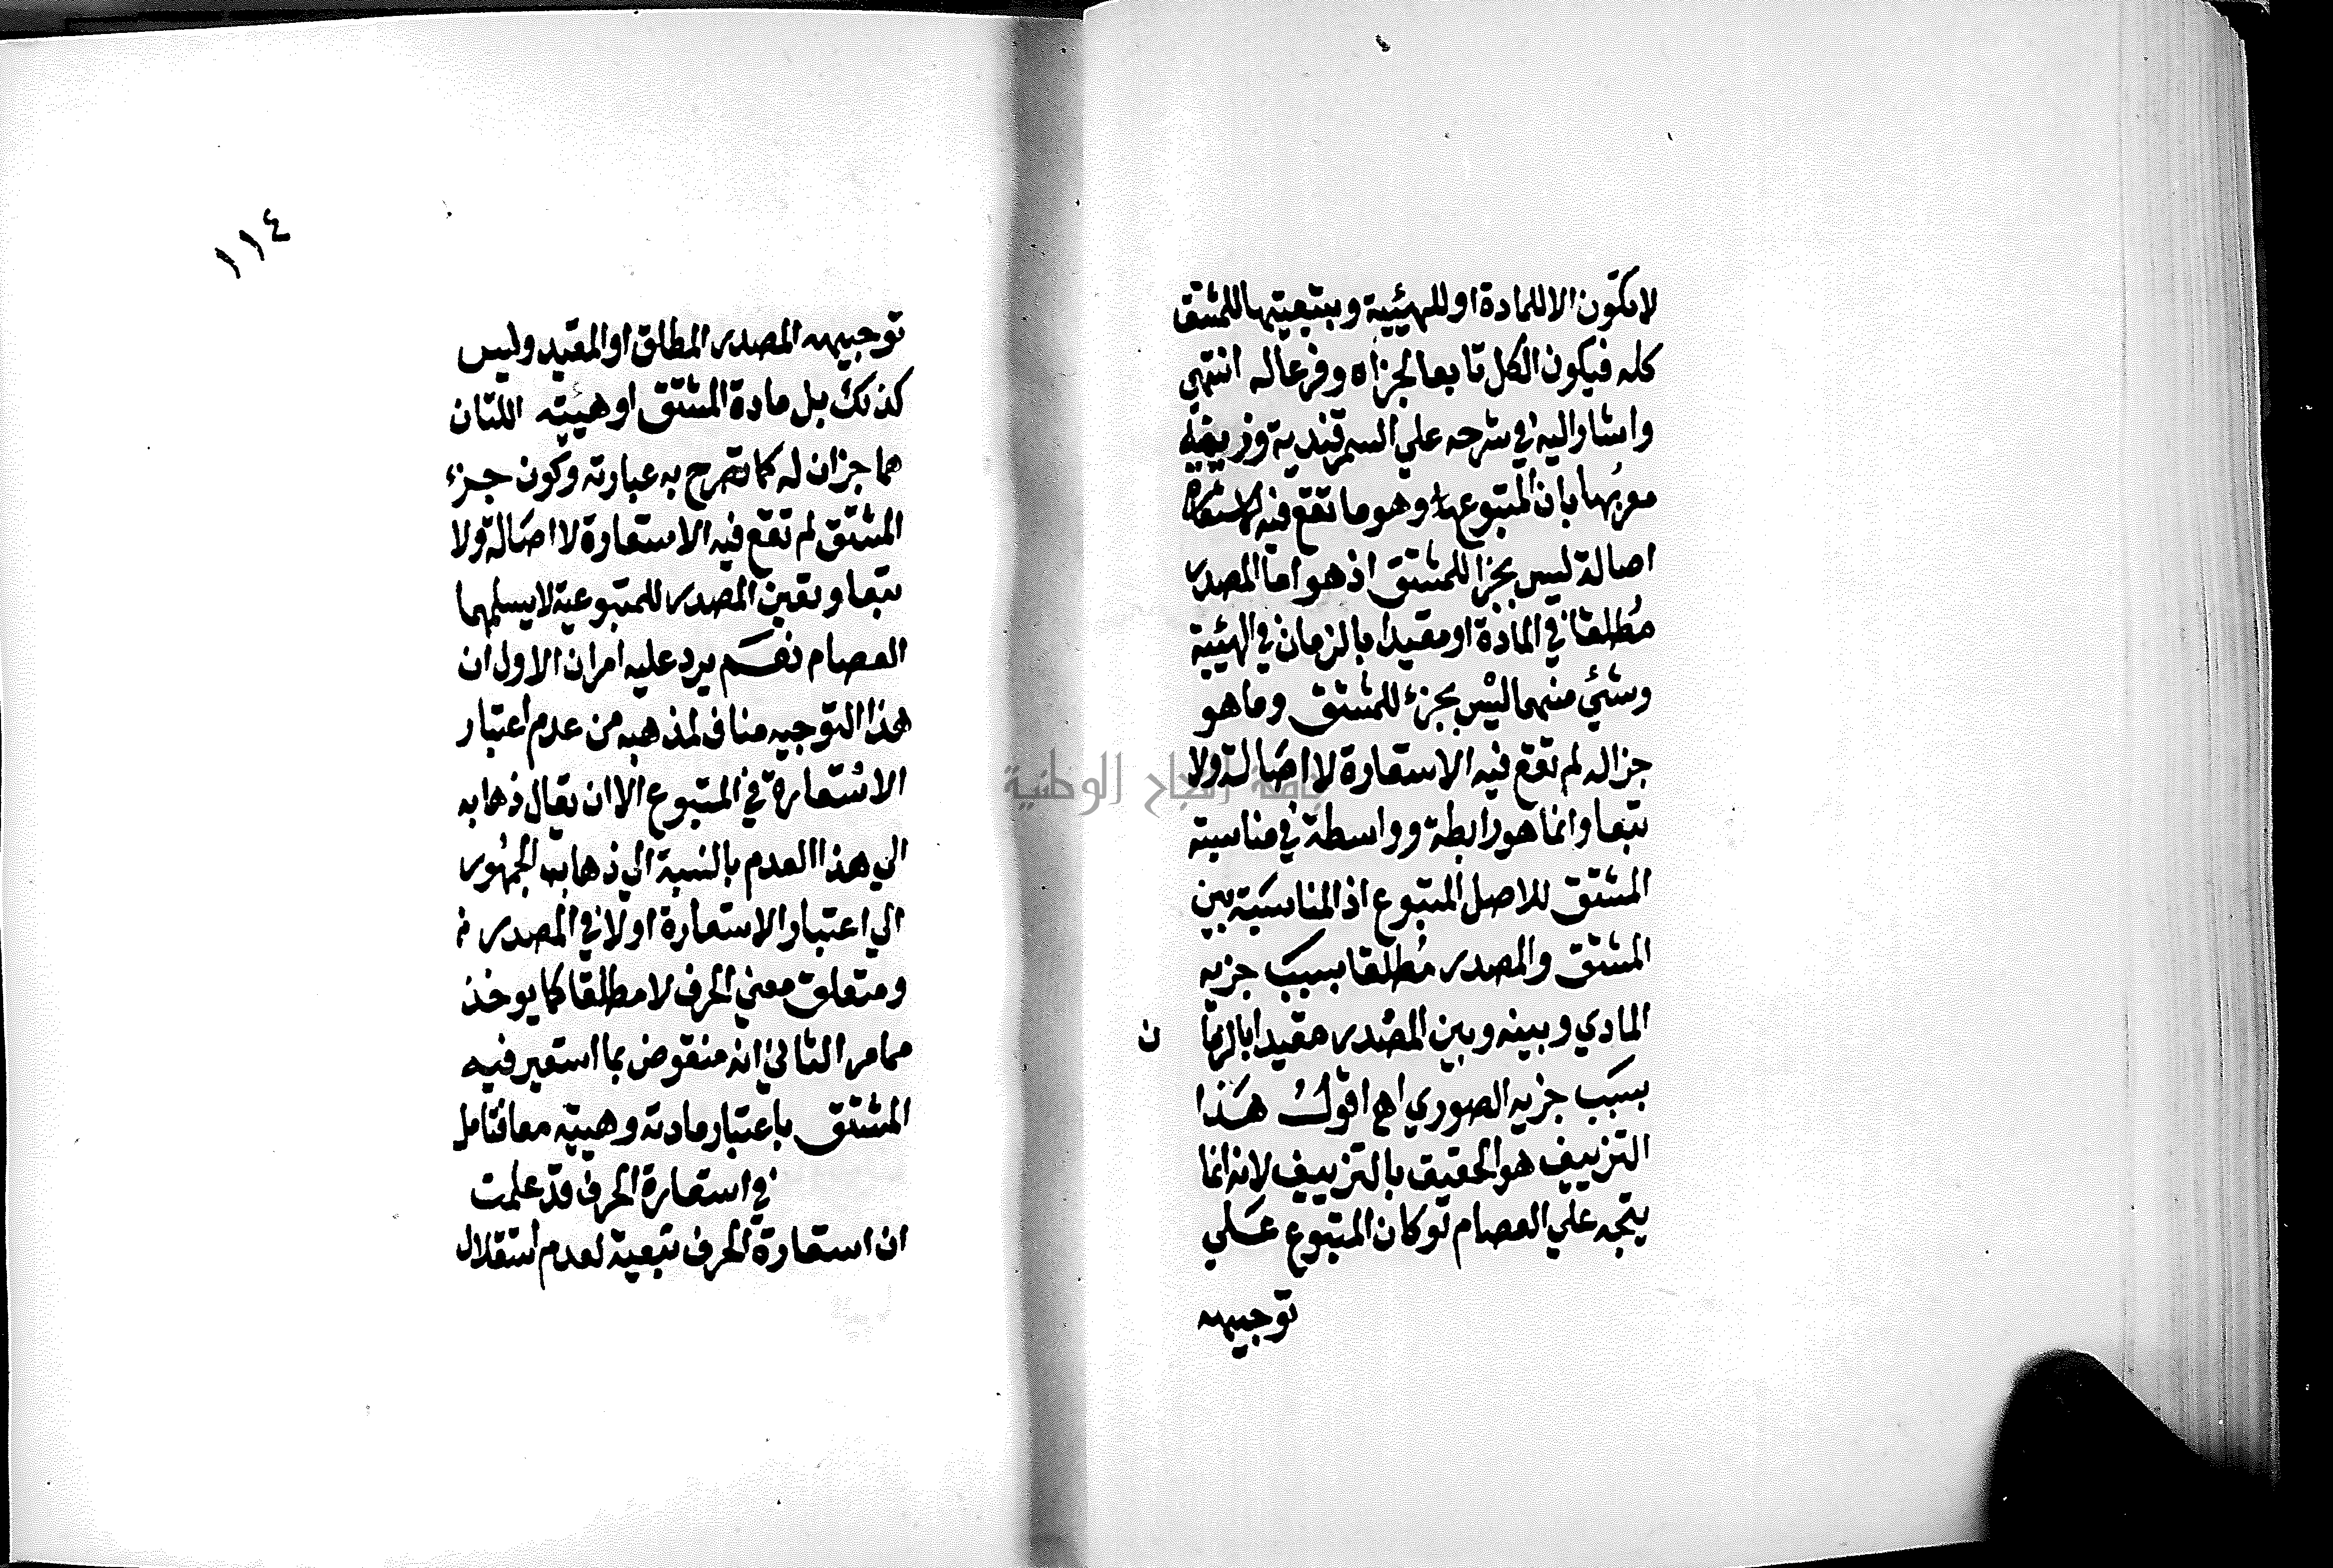 لاتكون الا للمادة او للهيئية وبتبعيتها للمشتق
كله فيكون الكل تابعا لجزاه وفرعا له انتهي
واشار اليه في شرحه علي السمرقندية وزيفه
معربها بان المتبوع وهو ما تقع فيه الاستعارة
اصالة ليس بجزا للمشتق اذ هو اما المصدر
مطلقا في المادة او مقيدا بالزمان في الهيئية
وشئ منهما ليس بجزء للمشتق وما هو
جزاله لم تقع فيه الاستعارة لا اصالة ولا
تبعا وانما هو رابطة وواسطة في مناسبة
المشتق للاصل المتبوع اذ المناسبة بين
المشتق والمصدر مطلقا بسبب جزيه
المادي وبينه وبين المصدر مقيدا بالزما ن
بسبب جزيه الصوري اهـ اقول هذا
التزييف هو الحقيق بالتزييف لانه انما
يتجه علي العصام لو كان المتبوع علي
توجيهه
١١٤
توجيهه المصدر المطلق او المقيد وليس
كذلك بل مادة المشتق او هيئته اللتان
هما جزان له كما تصرح به عبارته وكون جزء
المشتق لم تقع فيه الاستعارة لا اصالة ولا
تبعا وتعين المصدر للمتبوعية لا يسلمهما
العصام نعم يرد عليه امران الاول ان
هذا التوجيه مناف لمذهبه من عدم اعتبار
الاستعارة في المتبوع الا ان يقال ذهابه
الي هذا العدم بالنسبة الي ذهاب الجمهور
الي اعتبار الاستعارة اولا في المصدر
ومتعلق معني الحرف لا مطلقا كما يوخذ
مما مر الثاني انه منقوض بما استعير فيه
المشتق باعتبار مادته وهيته معا فتامل
في استعارة الحرف قد علمت
ان استعارة الحرف تبعية لعدم استقلال
جامعة النجاح الوطنية